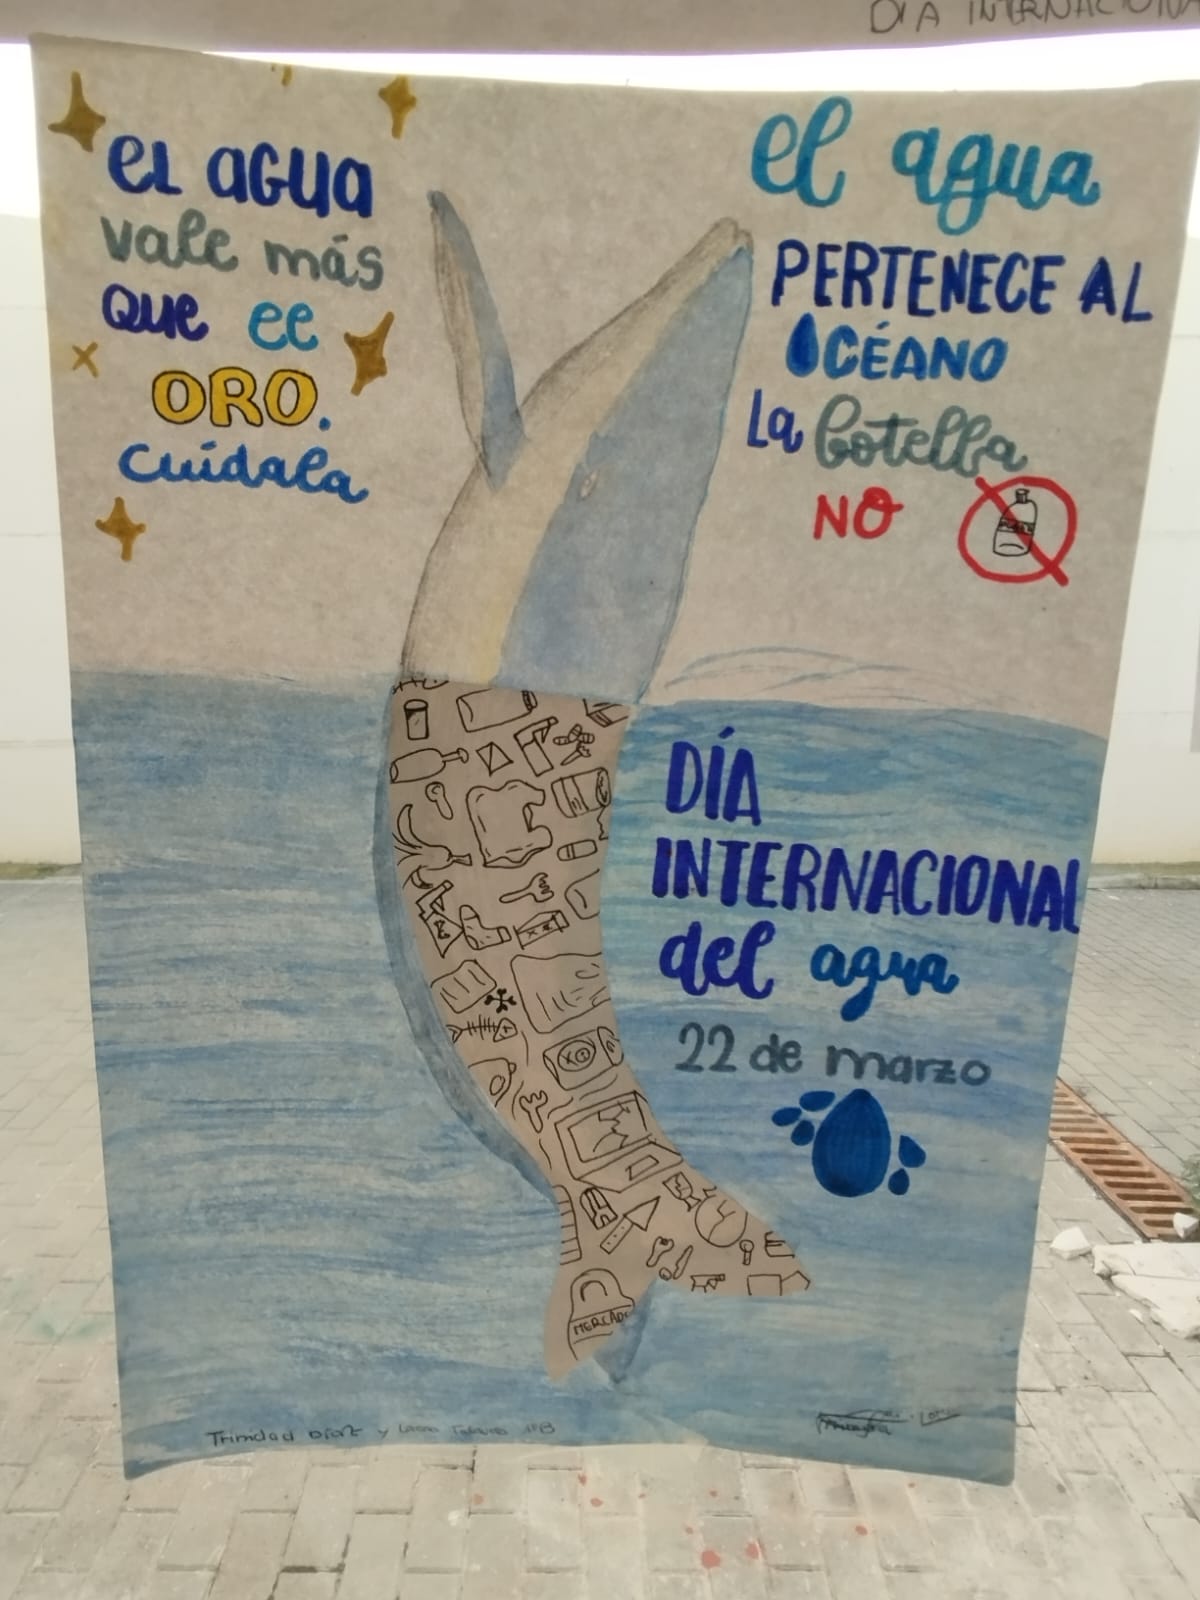 DIA INTERNACIONA
EL AGUA
vale más
que el
ORO.
cuídala
el agua
PERTENECE AL
OCÉANO
La botella
NO
DÍA
INTERNACIONAL
del agua
22 de marzo
MERCADO
Trinidad Díaz y